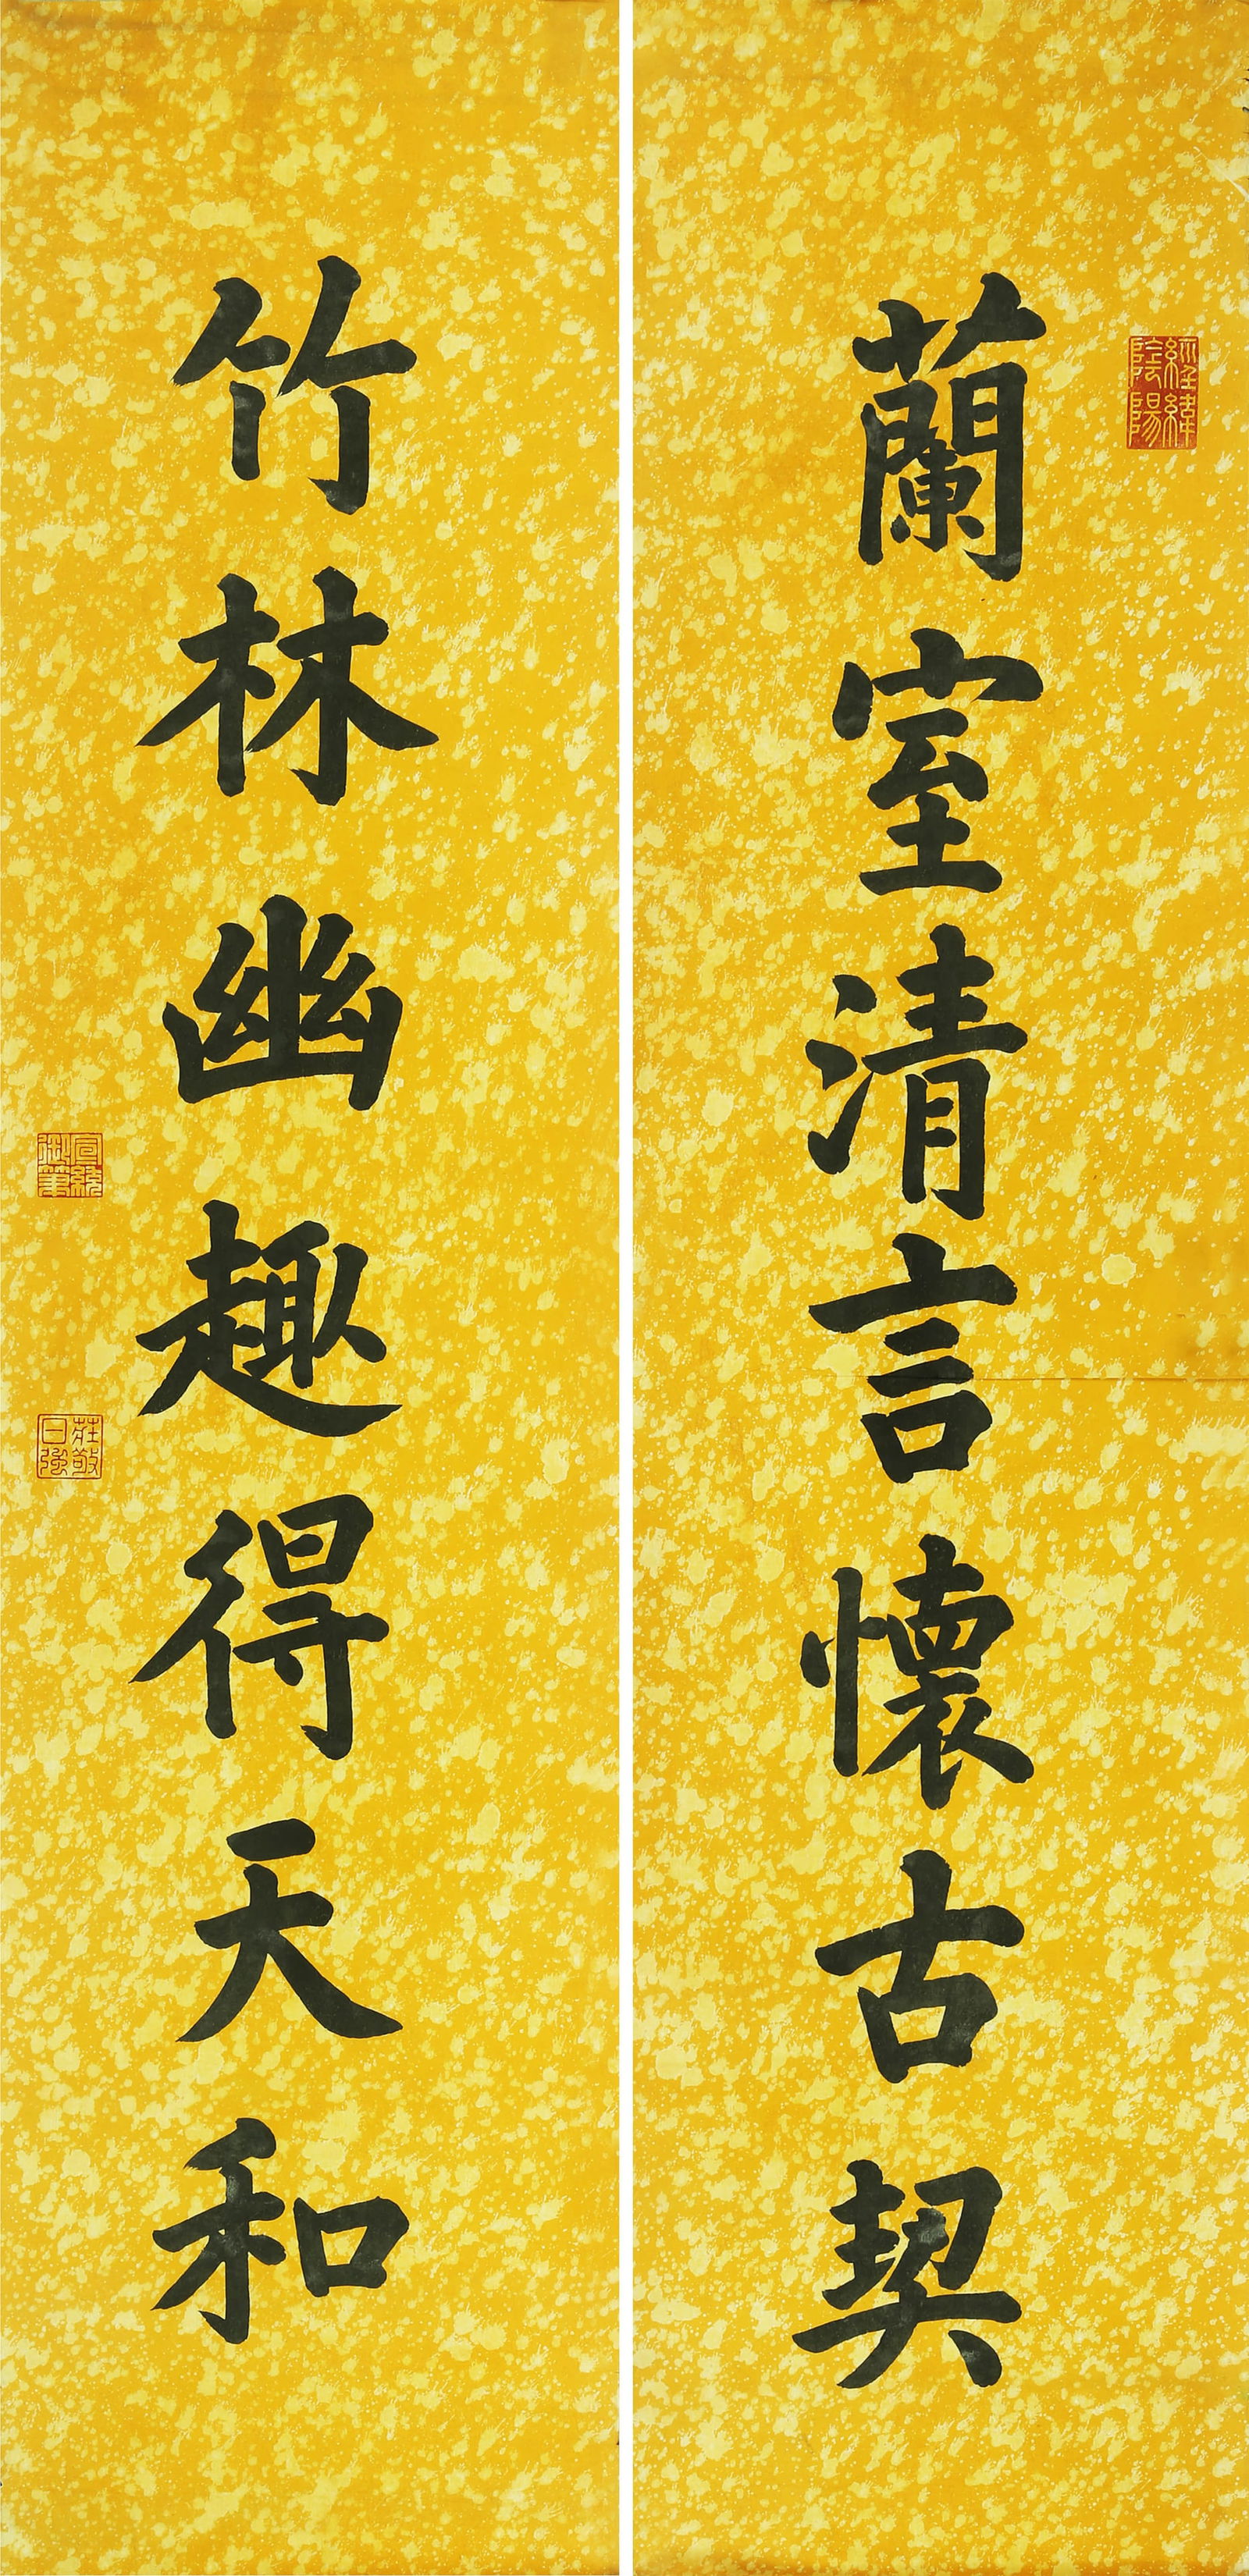 蘭室清言懷古契
竹林幽趣得天和
經緯陰陽
宣統御筆
莊敬日強